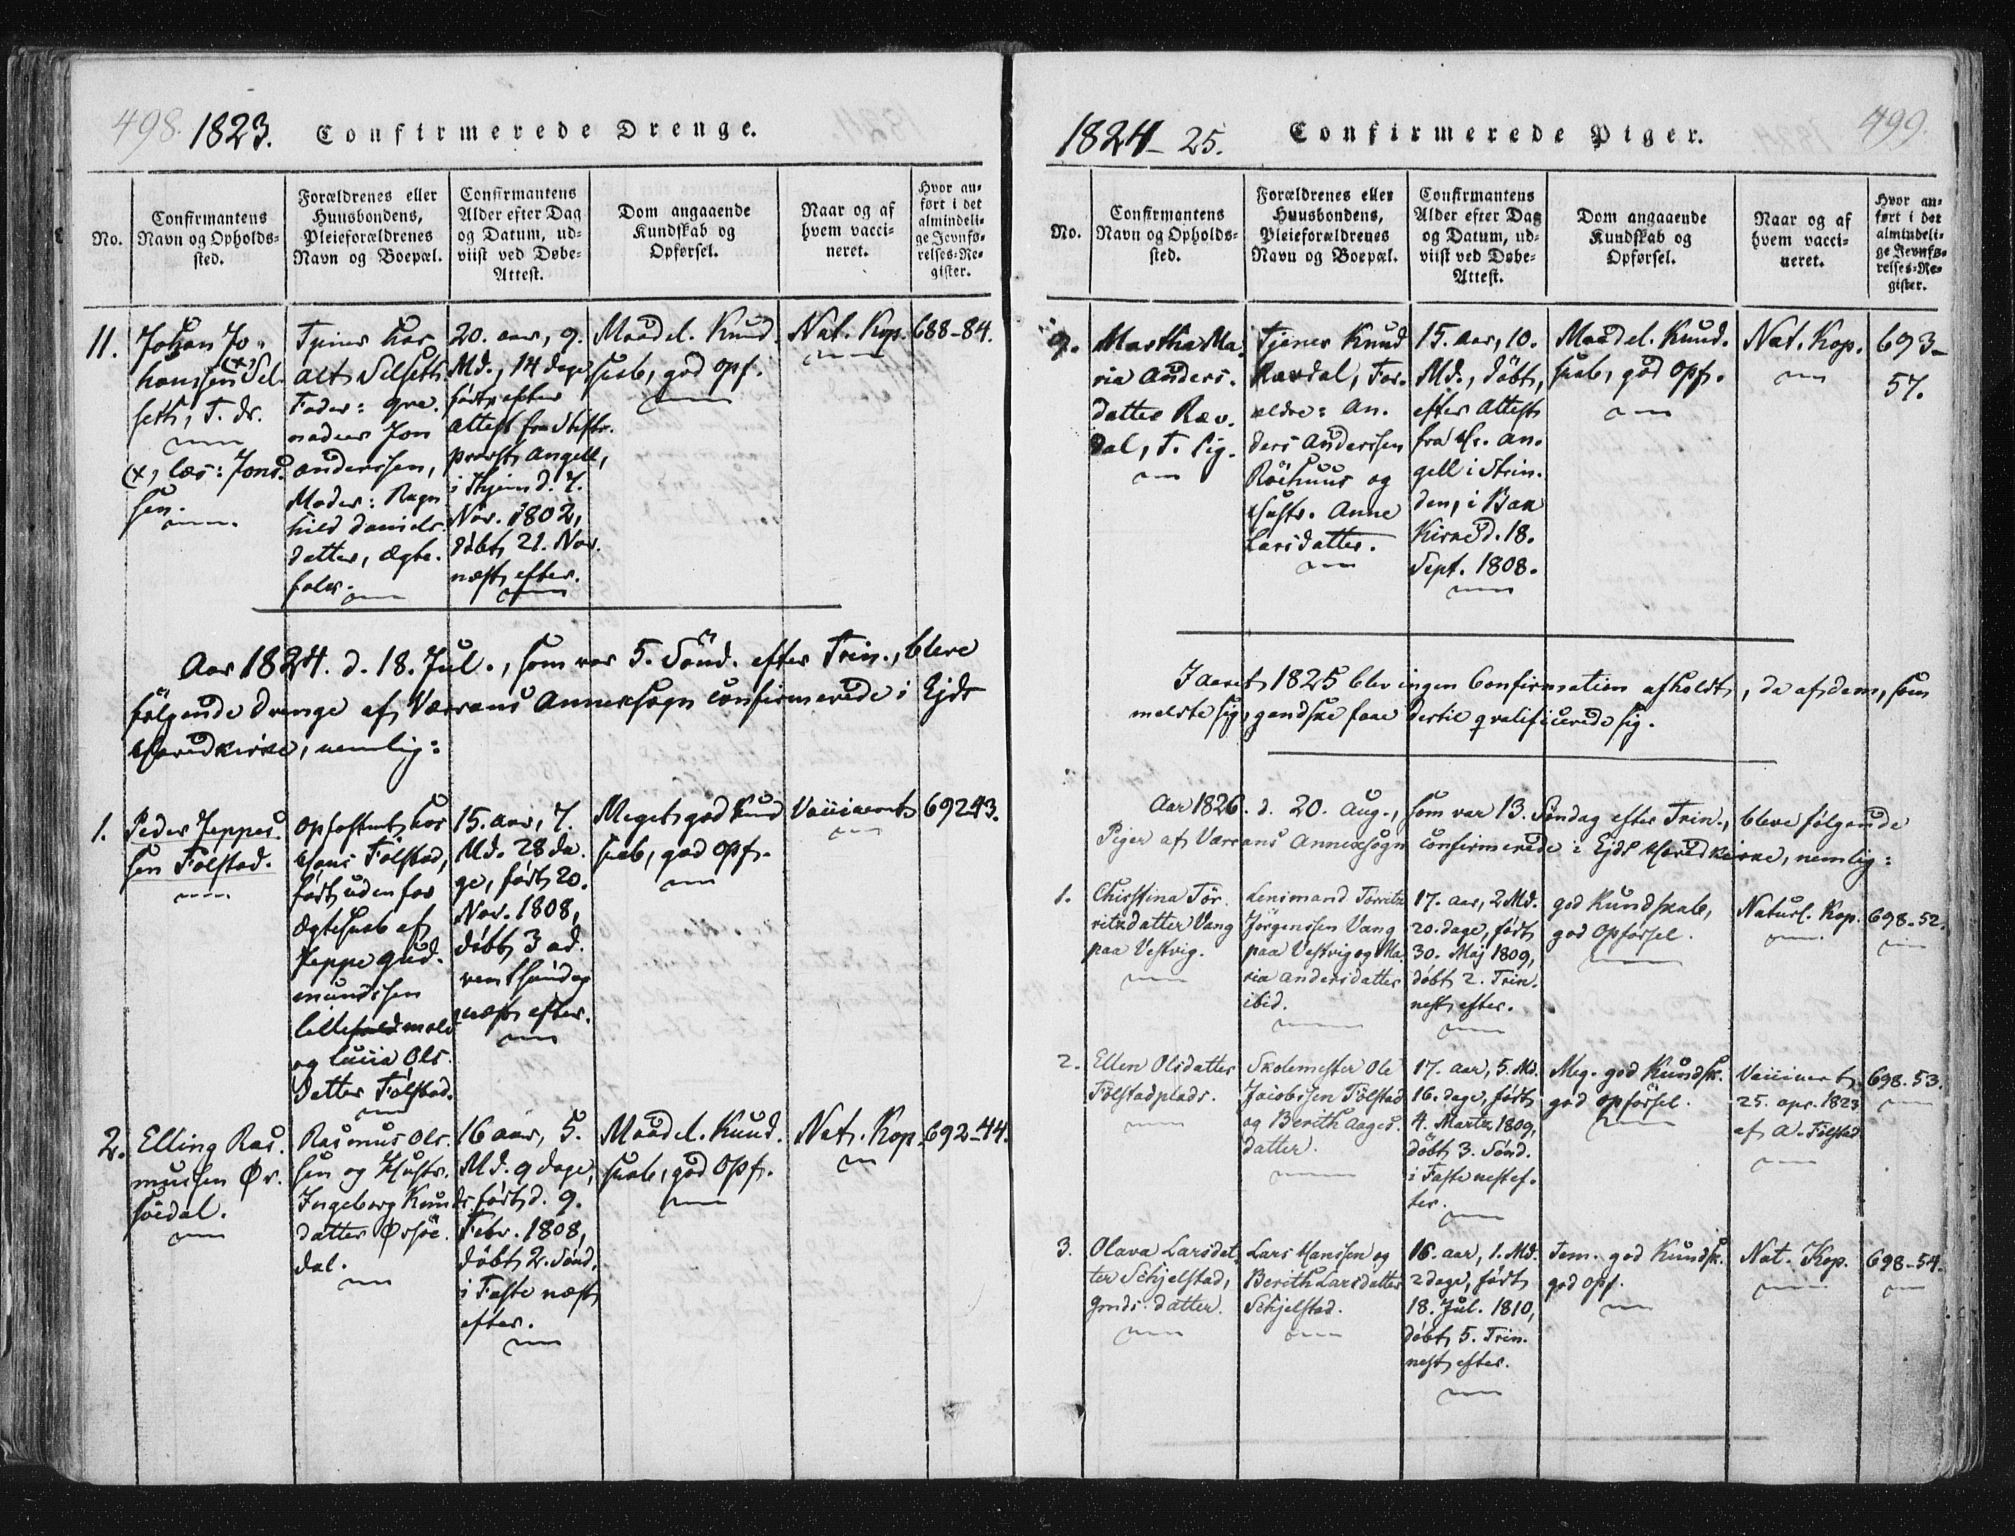 498. 1823. Confirmerede Drenge.
No.
Confirmantens
Navn og Opholds-
sted.
Forældrenes eller
Huusbondens,
Pleieforældrenes
Navn og Boepæl.
Confirmantens
Alder efter Dag
og Datum, ud-
viist ved Døbe-
Attest.
Dom angaaende
Kundskab og
Opførsel.
Naar og af
hvem vacci-
neret.
Hvor an-
ført i det
almindeli-
ge Jevnfø-
relses-Re-
gister.
11.
Johan Jo-
hanssen (x) Sel-
seth, T. dr.
(x, læs: Jons-
sen.
Tjener hos
alt Selseth.
Fader: gre-
nadeer Jon
Anderssen,
Moder: Ragn
hild Daniels-
datter, Ægte-
folk.
20. aar, 9.
Md., 14 dage
født efter
attest fra Stifts-
provst Angell,
i Thjem d. 7.
Nov. 1802,
døbt 21. Nov.
næst efter.
Maadel. Kund-
skab, god Opf.
Nat. Kop.
688-84.
Aar 1824. d. 18. Jul., som var 5. Sönd. efter Trin., bleve
følgende Drenge af Værrans Annexsogn confirmerede i Ejds
Hovedkirke, nemlig:
1.
Peder Jeppes-
sen Følstad.
Opfostret hos
Hans Følstad,
født uden for
Ægteskab af
Jeppe Gud-
mundssen
Lillemold
og Lucia Ols-
datter Følstad.
15. aar, 7.
Md. 28 da-
ge, født 20.
Nov. 1808,
døbt 3 ad-
vent Søndag
næst efter.
Meget god Kund
skab, god Opf.
Vaccineret
692-43.
2.
Elling Ras-
mussen Ør-
söedal.
Rasmus Ols-
sen og Hustr.
Ingeborg Knuds-
datter Ørsöe-
dal.
16 aar, 5.
Md. 9 dage,
født d. 9.
Febr. 1808,
døbt 2. Sönd.
i Faste næst
efter.
Maadel. Kund-
skab, god Opf.
Nat. Kop.
692-44.
1824-25. Confirmerede Piger. 499.
No.
Confirmantens
Navn og Opholds-
sted.
Forældrenes eller
Huusbondens,
Pleieforældrenes
Navn og Boepæl.
Confirmantens
Alder efter Dag
og Datum, ud-
viist ved Døbe-
Attest.
Dom angaaende
Kundskab og
Opførsel.
Naar og af
hvem vacci-
neret.
Hvor an-
ført i det
almindeli-
ge Jevnfø-
relses-Re-
gister.
9.
Martha Ma-
ria Anders-
datter Ræv-
dal, T. Pig.
Tjener Knud
Rævdal, For-
ældre: An-
ders Anderssen
Röehuus og
Hustr. Anne
Larsdatter.
15. aar, 10.
Md., døbt,
efter Attest
fra Hr. An-
gell i Strin-
den, i Bak
Kirke d. 18.
Sept. 1808.
Maadel. Kund-
skab, god Opf.
Nat. Kop.
693-
57.
I aaret 1825 blev ingen Confirmation afholdt, da af dem, som
meldte sig, gandske faae dertil qvalificerede sig.
Aar 1826. d. 20. Aug., som var 13. Søndag efter Trin., bleve følgende
Piger af Værrans Annexsogn confirmerede i Ejds Hovedkirke, nemlig:
1.
Christina Tör-
ritzdatter Vang
paa Vestvig.
Lensmand Törritz
Jörgenssen Vang
paa Vestvig og Ma-
ria Andersdatter
ibid.
17. aar, 2 Md.
20. dage, født
30. Maj 1809,
døbt 2. Trin.
nest efter.
god Kundskab,
god Opførsel.
Naturl. Kop.
698-52.
2.
Ellen Olsdatter
Følstadplads.
Skolemester Ole
Jacobssen Følstad
og Berith Aages-
datter.
17. aar, 5. Md.
16. dage, født
4. Martz 1809,
døbt 3. Sönd.
i Faste nest ef-
ter.
Meg. god Kundsk.
god Opførsel.
Vaccineret
25. apr. 1823
af A. Følstad
698-53.
3.
Olava Larsdat-
ter Schjelstad,
Gmds. datter.
Lars Hanssen og
Berith Larsdatter
Schjelstad.
16. aar, 1. Md.
2 dage, født
18. Jul. 1810,
døbt 5. Trin.
nest efter.
Tem. god Kundsk.
god Opf.
Nat. Kop.
698-54.